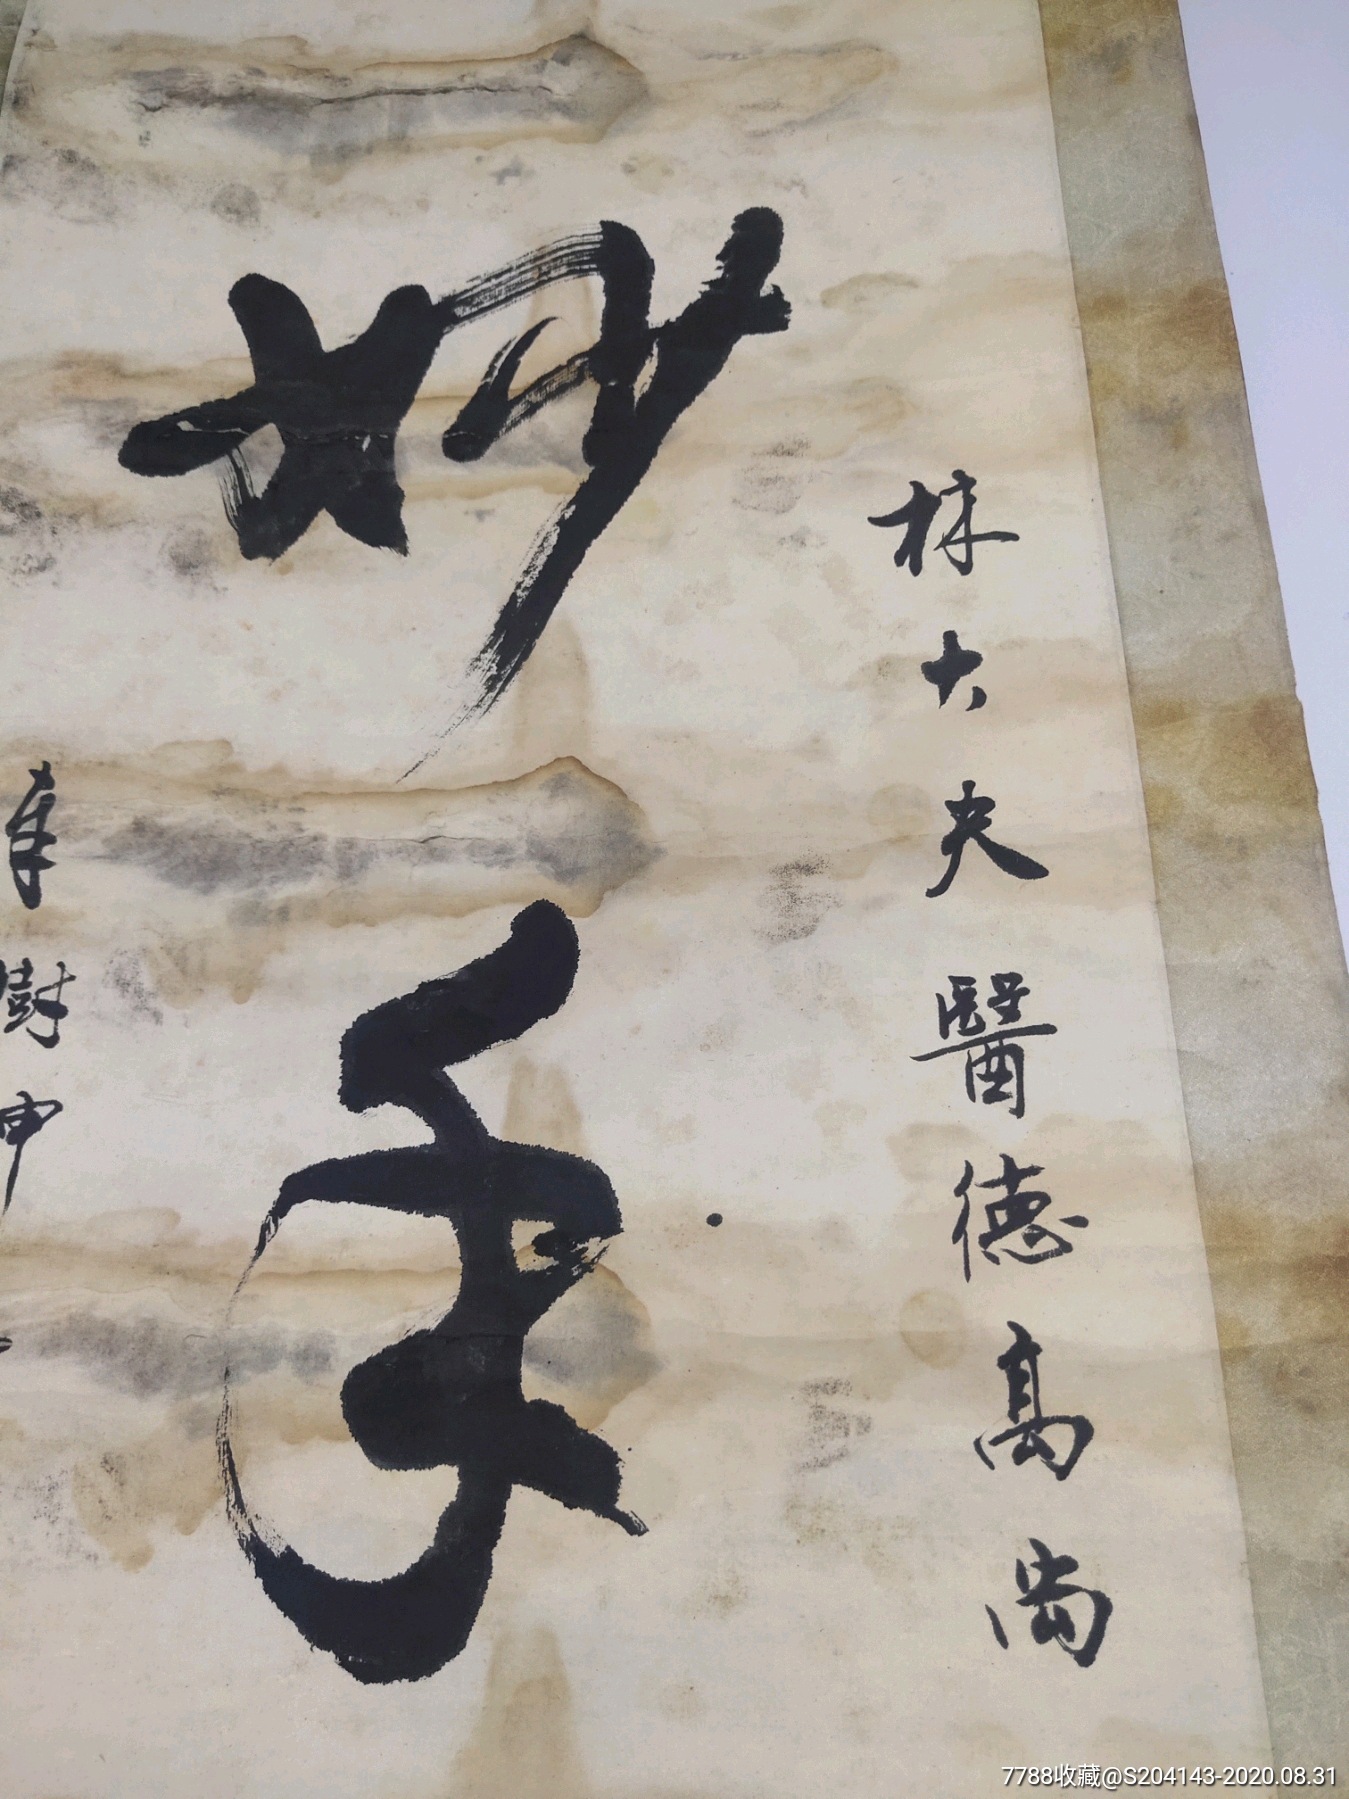 林大夫醫德高尚
妙手
樹申
7788收藏@S204143-2020.08.31